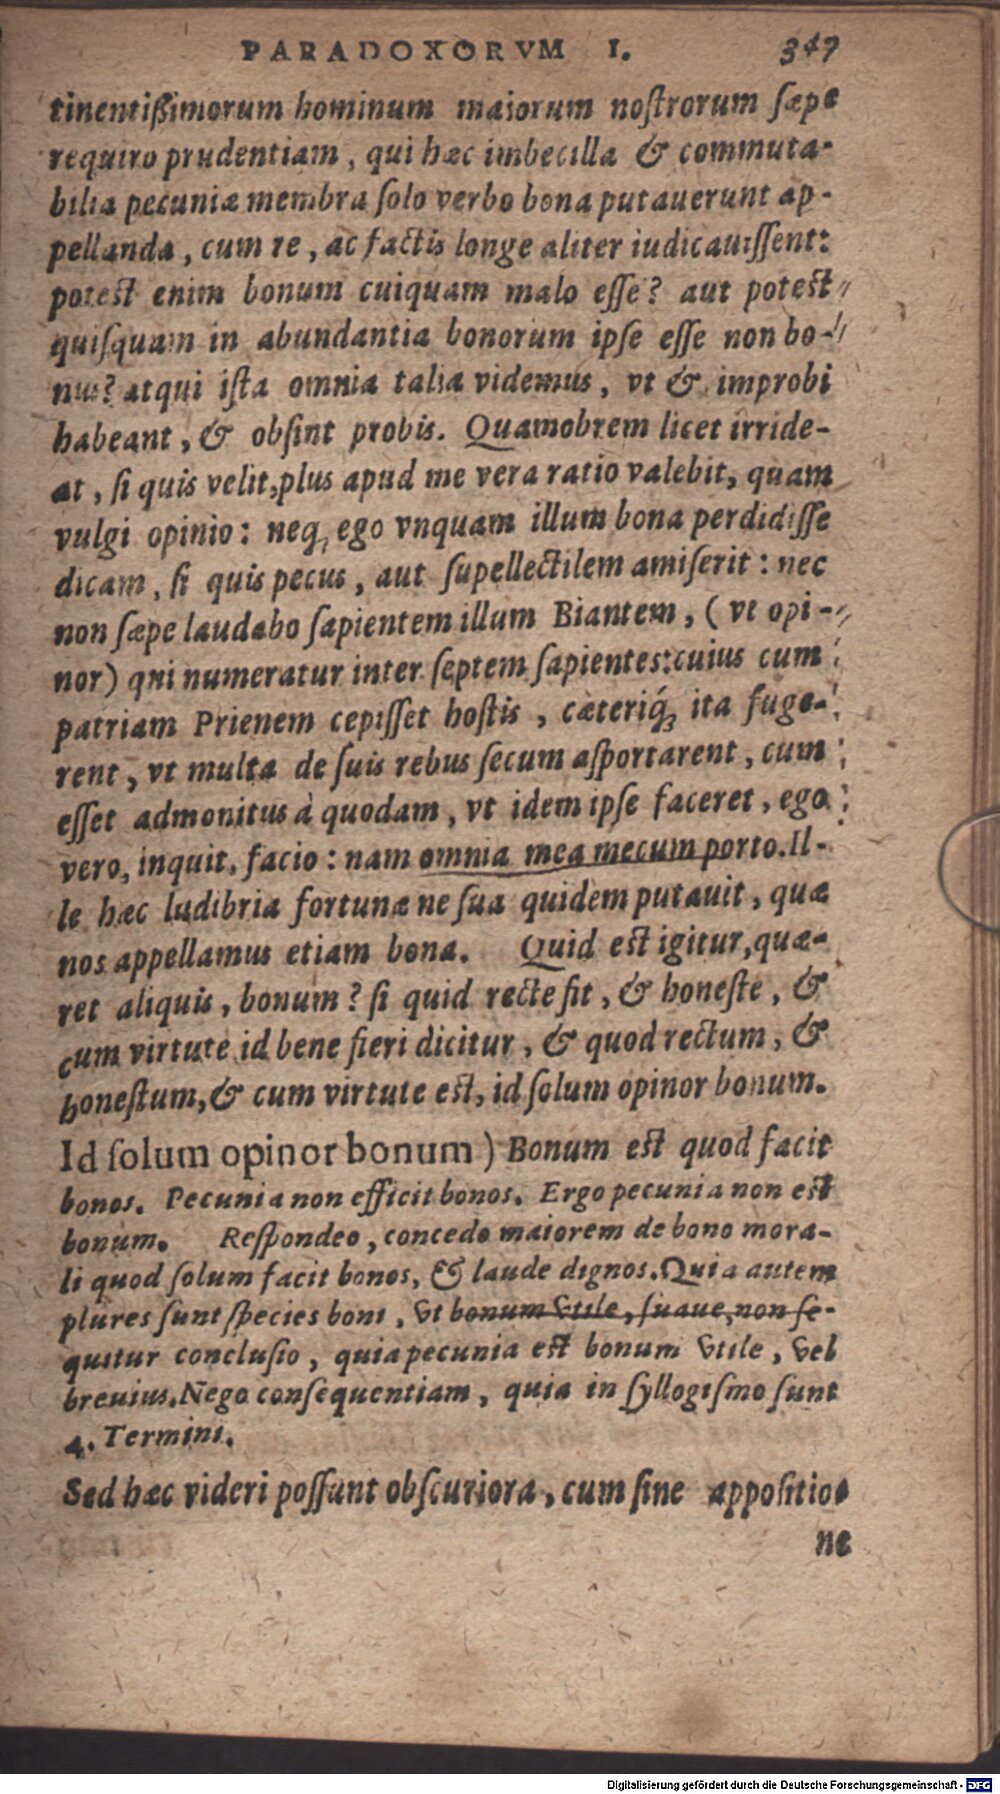 PARADOXORVM I. 347
tinentißimorum hominum maiorum noſtrorum ſæpe
requiro prudentiam, qui hæc imbecilla & commuta-
bilia pecuniæ membra ſolo verbo bona putauerunt ap-
pellanda, cum re, ac factis longe aliter iudicauiſſent:
poteſt enim bonum cuiquam malo eſſe? aut poteſt
quiſquam in abundantia bonorum ipſe eſſe non bo-
nus? atqui iſta omnia talia videmus, vt & improbi
habeant, & obſint probis. Quamobrem licet irride-
at, ſi quis velit, plus apud me vera ratio valebit, quam
vulgi opinio: neq; ego vnquam illum bona perdidiſſe
dicam, ſi quis pecus, aut ſupellectilem amiſerit: nec
non ſæpe laudabo ſapientem illum Biantem, (vt opi-
nor) qui numeratur inter ſeptem ſapientes: cuius cum
patriam Prienem cepiſſet hoſtis, cæteriq́; ita fuge-
rent, vt multa de ſuis rebus ſecum aſportarent, cum
eſſet admonitus à quodam, vt idem ipſe faceret, ego
vero, inquit, facio: nam omnia mea mecum porto. Il-
le hæc ludibria fortunæ ne ſua quidem putauit, quæ
nos appellamus etiam bona. Quid eſt igitur, quæ-
ret aliquis, bonum? ſi quid recte fit, & honeſte, &
cum virtute id bene fieri dicitur, & quod rectum, &
honeſtum, & cum virtute eſt, id ſolum opinor bonum.
Id ſolum opinor bonum) Bonum eſt quod facit
bonos. Pecunia non efficit bonos. Ergo pecunia non eſt
bonum. Reſpondeo, concedo maiorem de bono mora-
li quod ſolum facit bonos, & laude dignos. Quia autem
plures ſunt ſpecies boni, vt bonum vtile, ſuaue, non ſe-
quitur concluſio, quia pecunia eſt bonum vtile, vel
breuius. Nego conſequentiam, quia in ſyllogiſmo ſunt
4. Termini.
Sed hæc videri poſſunt obſcuriora, cum ſine appoſitio-
ne
Digitalisierung gefördert durch die Deutsche Forschungsgemeinschaft - DFG